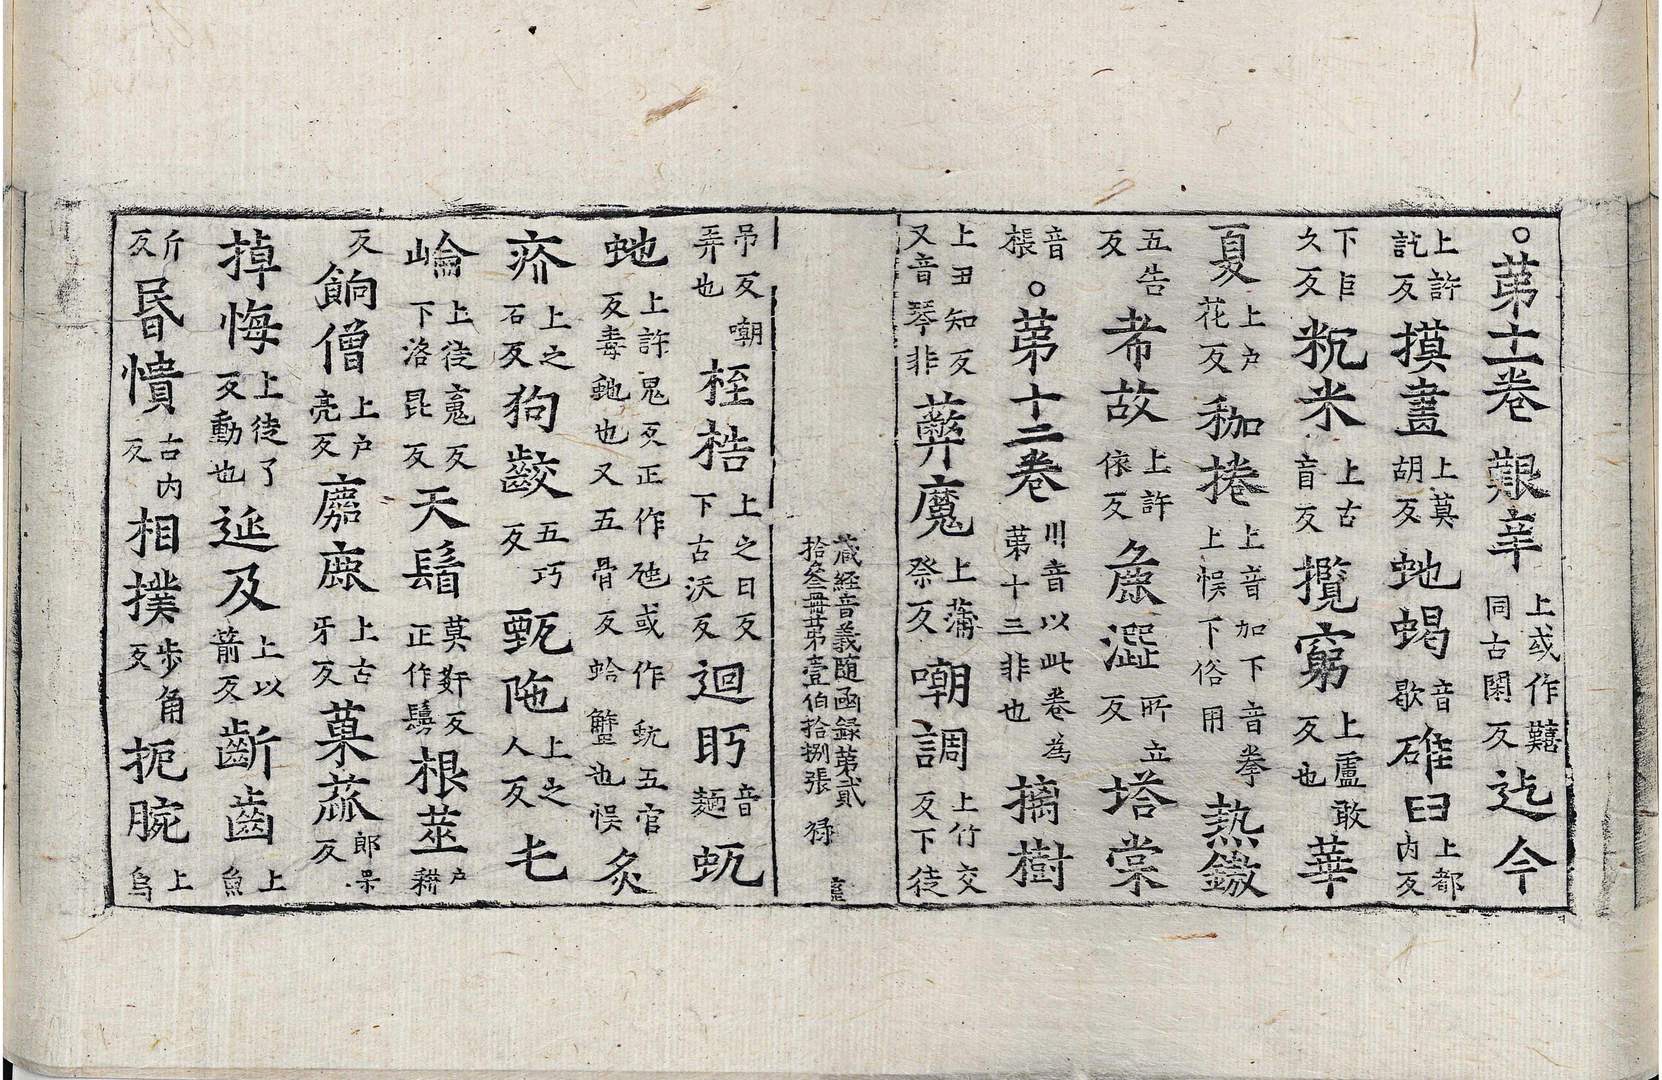 ○第十一卷 艱辛 上或作囏同古閑反 迄今
上許訖反 摸畫 上莫胡反 虵蝎 音歇 碓臼 上都內反
下巨久反 粇米 上古盲反 攬窮 上盧敢反也 華
夏 上户花反 枷捲 上音加下音拳上悮下俗用 熱鏾
五告反 希故 上許依反 麁澀 所立反 塔棠
音棖 ○第十二卷 川音以此卷為第十三非也 摛樹
上丑知反又音琴非 薜魔 上蒲祭反 嘲調 上竹交反下徒
藏經音義随函録第貳拾叄冊第壹伯拾捌張 禄
吊反嘲弄也 桎梏 上之日反下古沃反 迴眄 音麵 蚖
虵 上許鬼反正作虺或作蚖五官反毒虵也又五骨反蛤蟹也悮 炙
疥 上之石反 狗齩 五巧反 甄陁 上之人反 七
崘 上徒寬反下洛昆反 天鬘 莫奸反正作鬘 根莖 户耕
反 餉僧 上户亮反 麚鹿 上古牙反 菓蓏 郎果反
掉悔 上徒了反動也 延及 上以箭反 齗齒 上魚
斤反 昬憒 古內反 相撲 步角反 扼腕 上烏